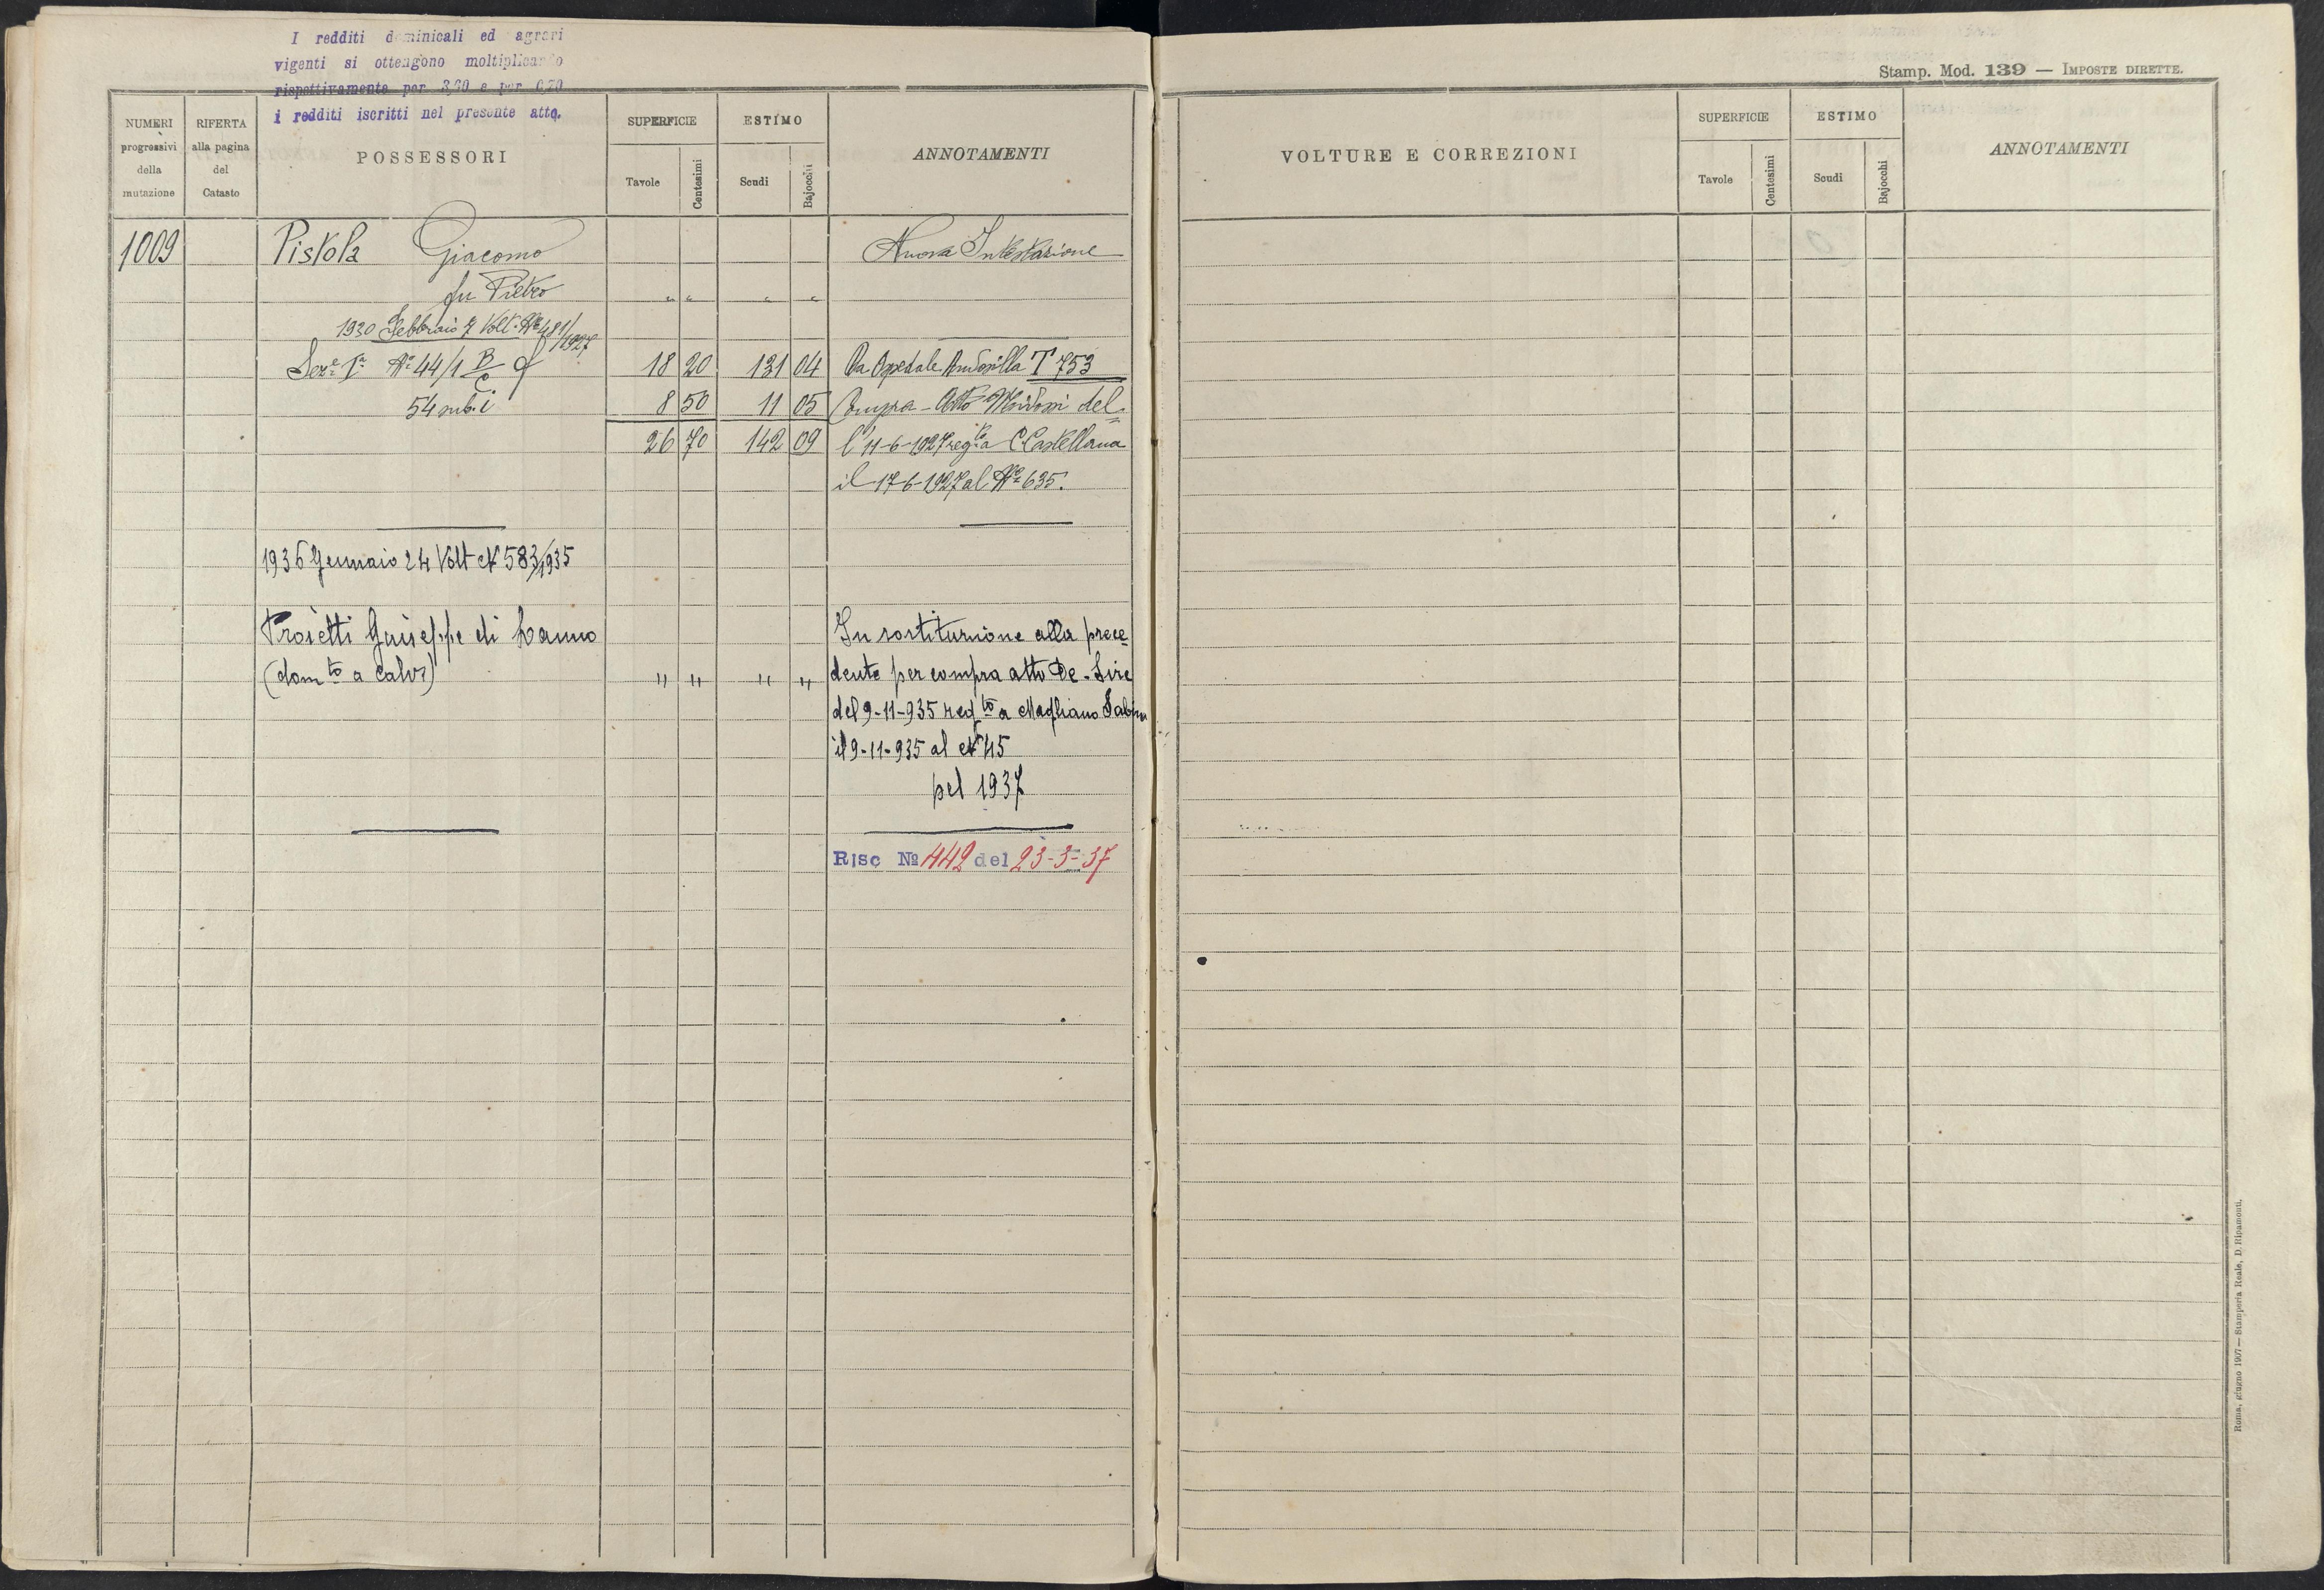 I redditi dominicali ed agrari
vigenti si ottengono moltiplicando
rispettivamente per 3,60 e per 0,70
i redditi iscritti nel presente atto.
Stamp. Mod. 139 — IMPOSTE DIRETTE.
NUMERI progressivi della mutazione
RIFERTA alla pagina del Catasto
POSSESSORI
SUPERFICIE
Tavole
Centesimi
ESTIMO
Scudi
Bajocchi
ANNOTAMENTI
1009 Pistola Giacomo Nuova Intestazione
fu Pietro " " " "
1930 Febbraio 7 Volt. Nº 481/1927
Sezº Iª Nº 44/1 B/C 18 20 131 04 Da Ospedale T 753
54 sub. i 8 50 11 05 Compra - Atto del=
26 70 142 09 l'11-6-1927 regto a C Castellana
il 17-6-1927 al Nº 635.
1936 Gennaio 24 Volt N 583/1935
Proietti Guiseppe di In sostituzione alla prece
(domto a Calvi) " " " " dente per compra atto De-
del 9-11-935 regto a Magliano Sabina
il 9-11-935 al Nº 45
pel 1937
Risc Nº 442 del 23-3-37
VOLTURE E CORREZIONI
SUPERFICIE
Tavole
Centesimi
ESTIMO
Scudi
Bajocchi
ANNOTAMENTI
Roma, giugno 1907 — Stamperia Reale, D. Ripamonti.